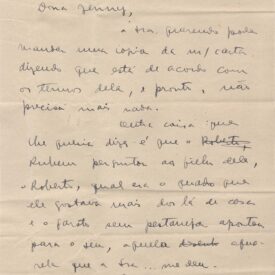 Dona Jenny,
a sra. querendo pode
mandar uma copia da m/ carta
dizendo que está de acordo com
os termos dela, e pronto, não
precisa mais nada.
Outra coisa: que
lhe queria dizer é que o Roberto,
Rubem perguntou ao filho dela,
o Roberto, qual era o quadro que
ele gostava mais dos lá de casa
e o garoto sem pestanejar apontou
para o seu, aquela aqua-
rela que a sra. me deu.